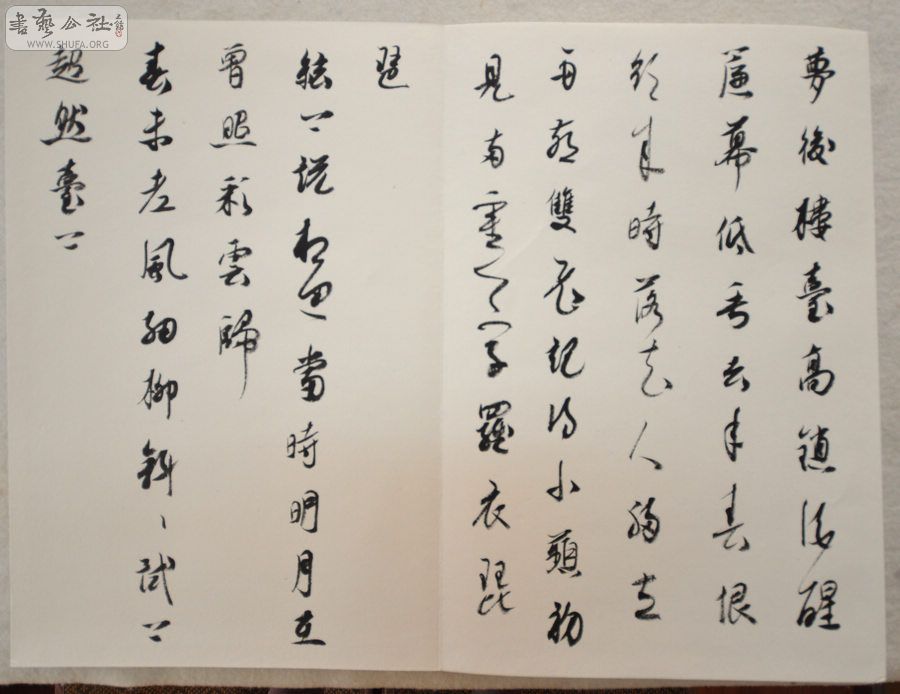 書藝公社
WWW.SHUFA.ORG
夢後樓臺高鎖酒醒
簾幕低垂去年春恨
却來時落花人獨立
雨燕雙飛記得小蘋初
見兩重心字羅衣琵
琶
絃上說相思當時明月在
曾照彩雲歸
春未老風細柳斜、試上
超然臺上